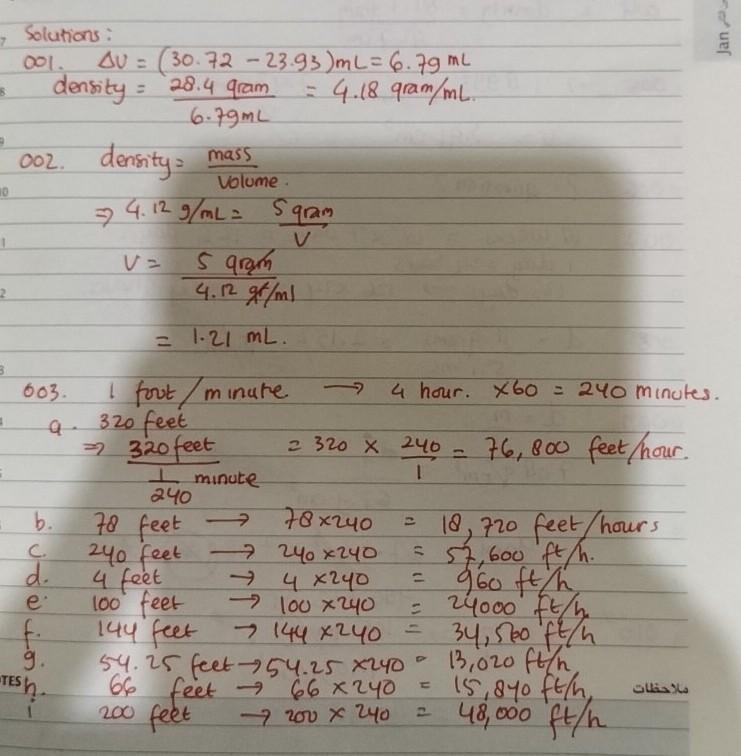 Jan
Solutions:
001. ΔV = (30.72 - 23.93)mL = 6.79 mL
density = 28.4 gram / 6.79mL = 4.18 gram/mL.
002. density = mass / Volume.
⇒ 4.12 g/mL = 5 gram / V
V = 5 gram / 4.12 gr/ml
= 1.21 mL.
003. 1 foot/minute → 4 hour. x60 = 240 minutes.
a. 320 feet
⇒ 320 feet / 1/240 minute = 320 x 240/1 = 76,800 feet/hour.
b. 78 feet → 78x240 = 18,720 feet/hours
c. 240 feet → 240x240 = 57,600 ft/h.
d. 4 feet → 4 x240 = 960 ft/h
e. 100 feet → 100 x240 = 24000 ft/h
f. 144 feet → 144 x240 = 34,560 ft/h
g. 54.25 feet → 54.25 x240 = 13,020 ft/h
h. 66 feet → 66 x 240 = 15,840 ft/h
i 200 feet → 200 x 240 = 48,000 ft/h
TES
ملاحظات